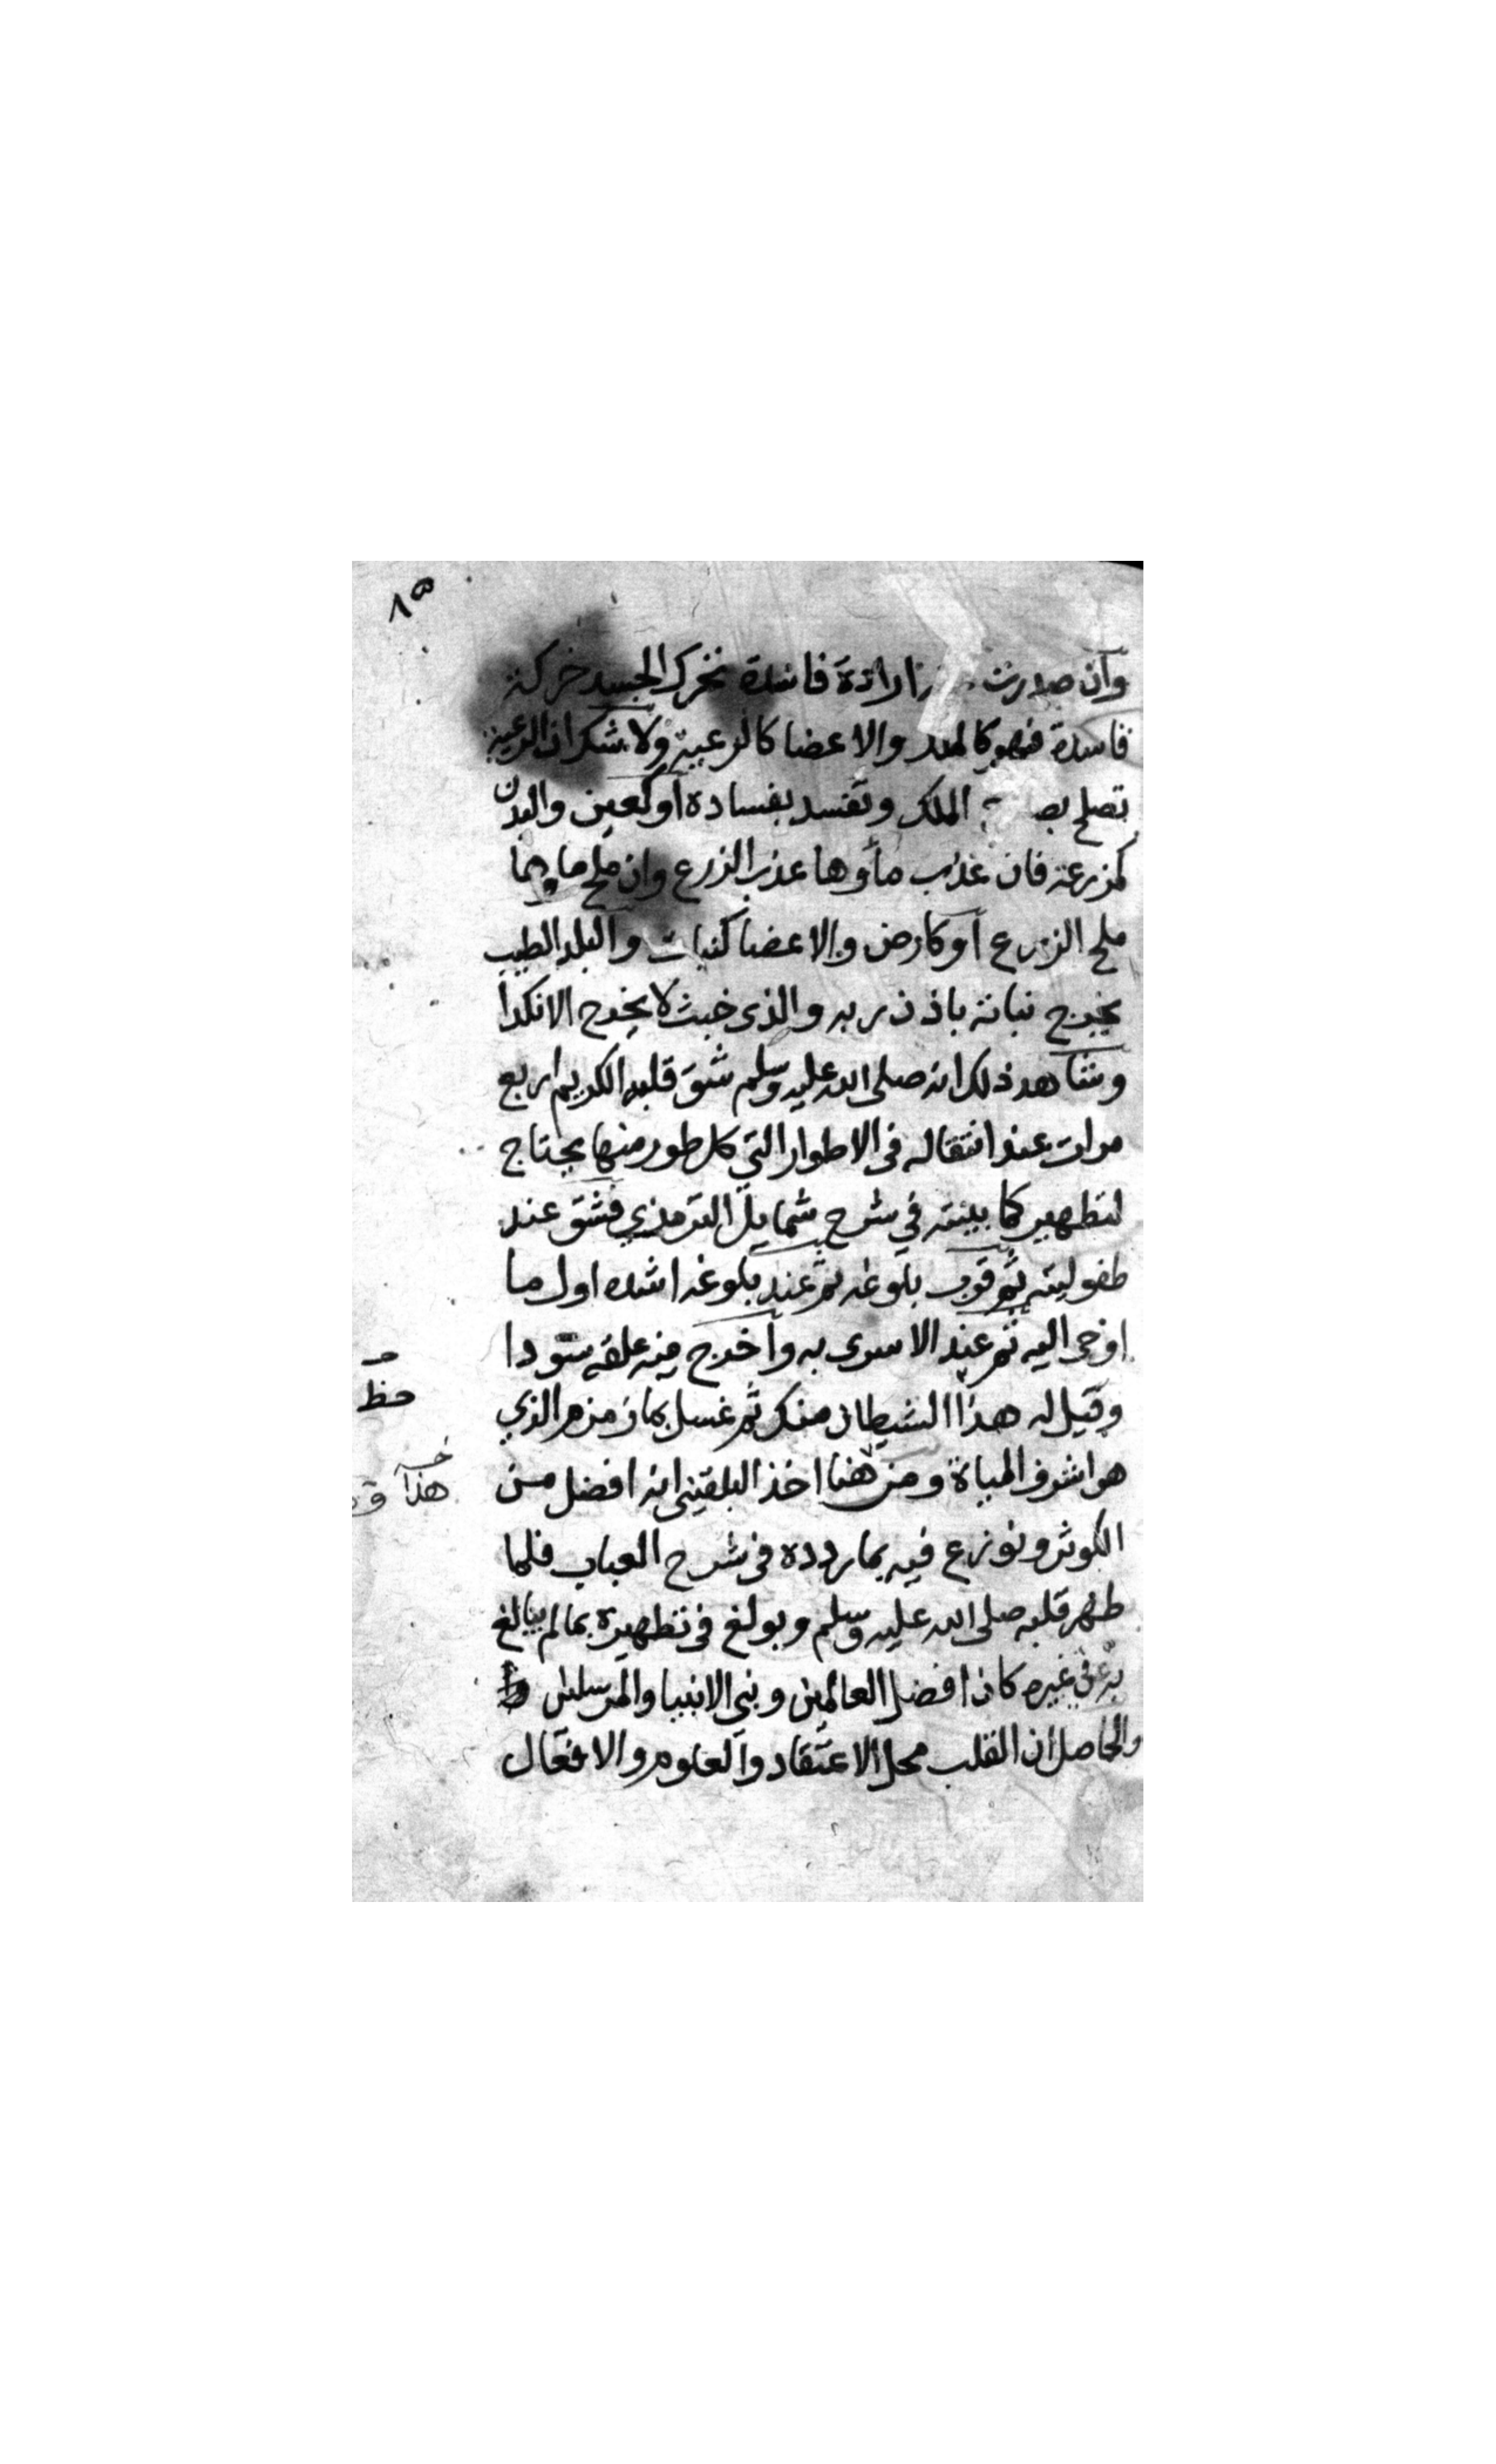 ٨٥
وان صدرت ارادة فاسدة تحرك الجسد حركة
فاسدة فهو كالملك والاعضا كالرعية ولا شك ان الرعية
تصلح الملك وتفسد بفساده أو كعين والبدن
كمزرعة فان عذب ماؤها عذب الزرع وان ملح ماوها
ملح الزرع أو كارض والاعضا كنبات والبلد الطيب
يخرج نباته باذن ربه والذى خبث لا يخرج الا نكدا
وشاهد ذلك انه صلى الله عليه وسلم شق قلبه الكريم اربع
مرات عند انتقاله فى الاطوار التي كل طور منها يحتاج
لتطهير كما بينته في شرح شمايل الترمذي فشق عند
طفوليته ثم قرب بلوغه ثم عند بلوغه اشده اول ما
اوحى اليه ثم عند الاسرى به وأخرج منه علقة سودا
وقيل له هذا الشيطان منك ثم غسل بماز مزم الذي
هو اشرف المياة ومن هنا اخذ البلقيني انه افضل من
الكوثر ونوزع فيه بما رددة فى شرح العباب فلما
طهر قلبه صلى الله عليه وسلم وبولغ فى تطهيره بما لم يبالغ
به فى غيره كان افضل العالمين ونبى الانبيا والمرسلين
والحاصل ان القلب محل الاعتقاد والعلوم والافعال
حظ
هذا